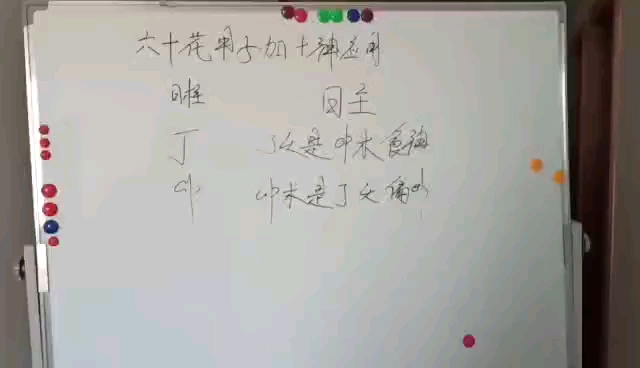 六十花甲子加十神应用
日柱 日主
丁 丁火是卯木食神
卯 卯木是丁火偏印